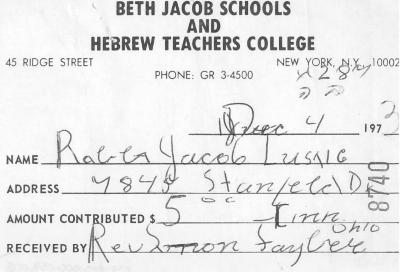 BETH JACOB SCHOOLS
AND
HEBREW TEACHERS COLLEGE
45 RIDGE STREET NEW YORK, N.Y. 10002
PHONE: GR 3-4500
4 197
NAME Jacob Lustig
ADDRESS 7845
AMOUNT CONTRIBUTED $ 5 00 Cinn. Ohio
RECEIVED BY Rev. Simon
8740